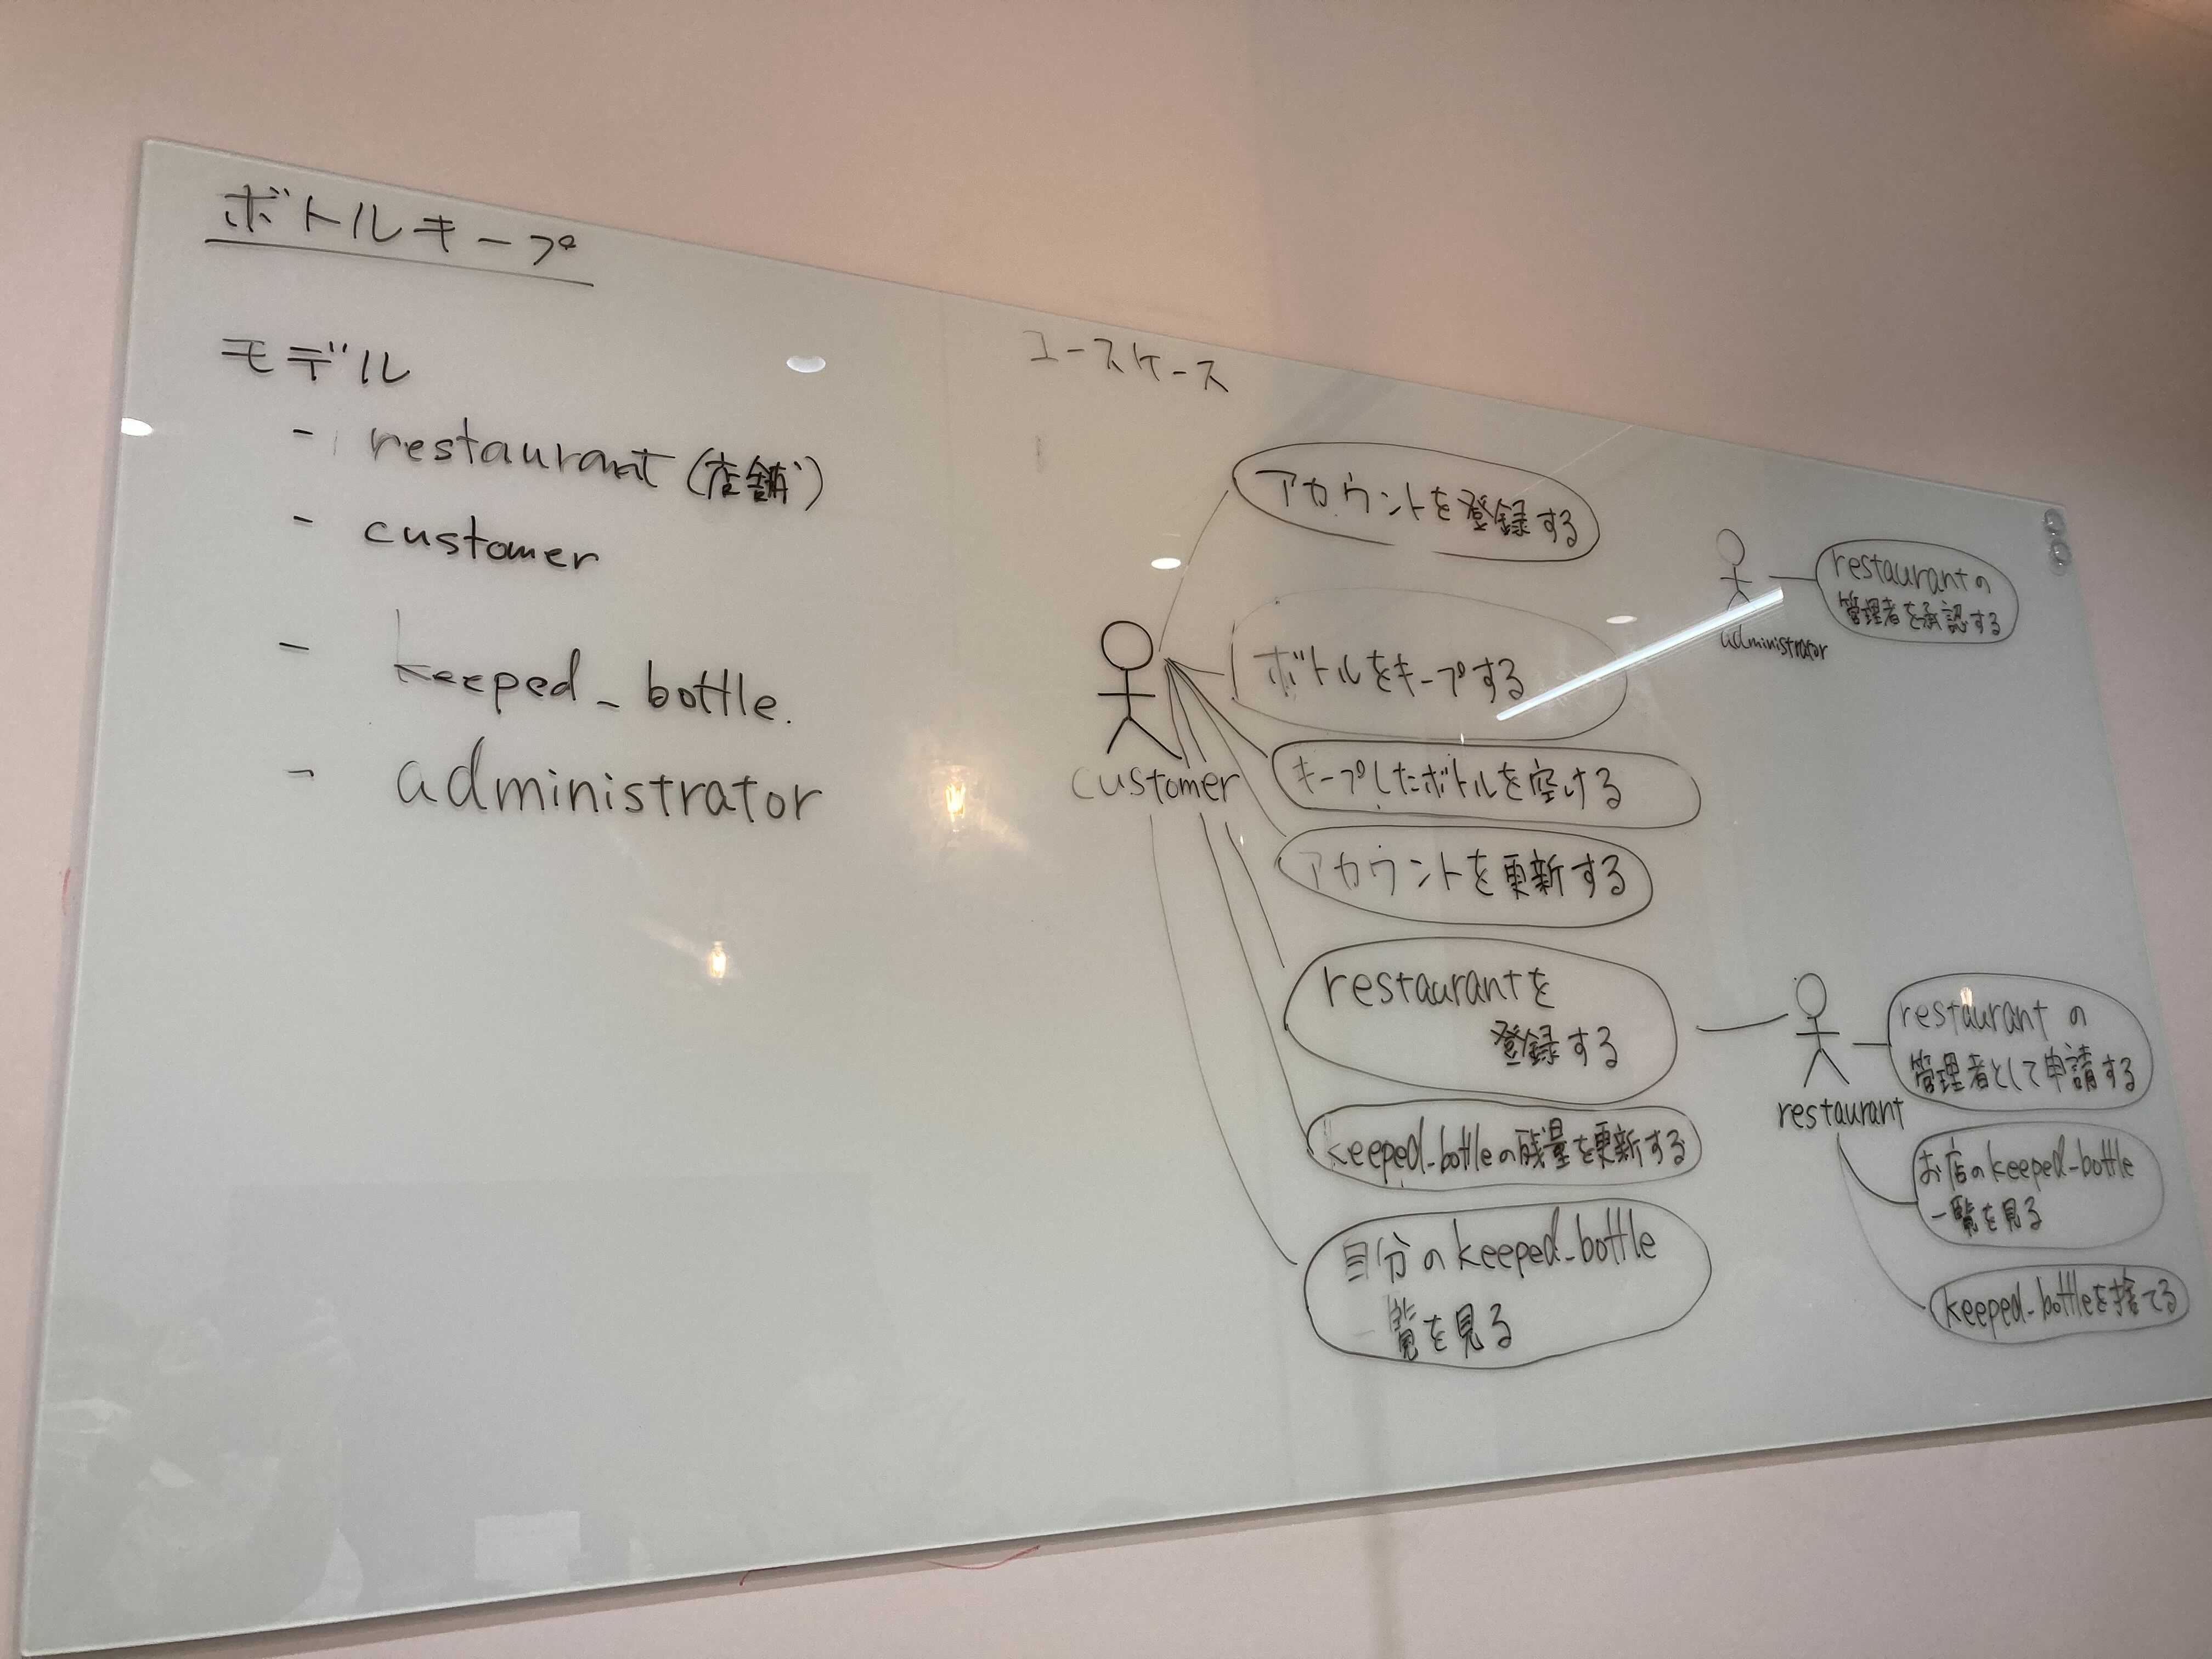 ボトルキープ
モデル
- restaurant (店舗)
- customer
- keeped_bottle.
- administrator
ユースケース
customer
アカウントを登録する
ボトルをキープする
キープしたボトルを空ける
アカウントを更新する
restaurantを
登録する
keeped_bottleの残量を更新する
自分のkeeped_bottle
一覧を見る
administrator
restaurantの
管理者を承認する
restaurant
restaurantの
管理者として申請する
お店のkeeped_bottle
一覧を見る
keeped_bottleを捨てる